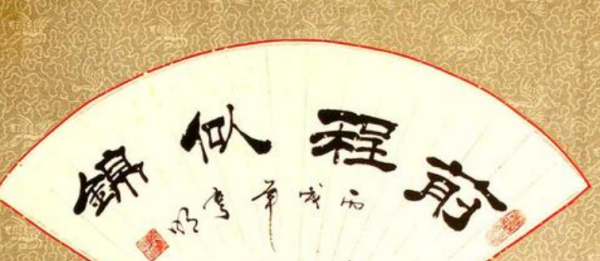 前程似錦
丙戌年